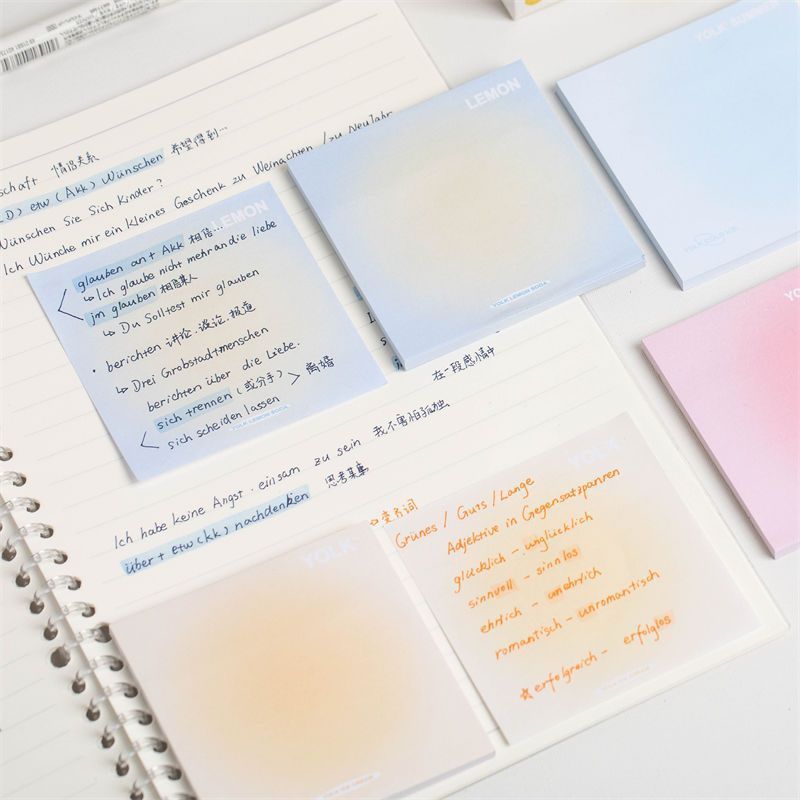 schaft 情侣关系
D) etw (Akk) Wünschen 希望得到...
Wünschen Sie Sich Kinder?
Ich Wünche mir ein kleines Geschenk zu Weinachten / zu Neujahr
LEMON
glauben an + Akk 相信...
↳ Ich glaube nicht mehr an die liebe
jm glauben 相信某人
↳ Du Solltest mir glauben
• berichten 讲论.谈论.报道
↳ Drei Grobstadtmenschen
berichten über die Liebe.
sich trennen (或分手) > 离婚
sich scheiden lassen
YOLK LEMON SODA
LEMON
YOLK LEMON SODA
YOLK SUMMER
在一段感情中
Ich habe keine Angst . einsam zu sein 我不害怕孤独
über + etw (kk) nachdenken 思考某事
YOLK
YOLK
变名词
Grünes / Guts / Lange
Adjektive in Gegensatzpanren
glücklich - unglücklich
sinnvoll - sinnlos
ehrlich - unehrlich
romantisch - unromantisch
☆ erfolgreich - erfolglos
YO